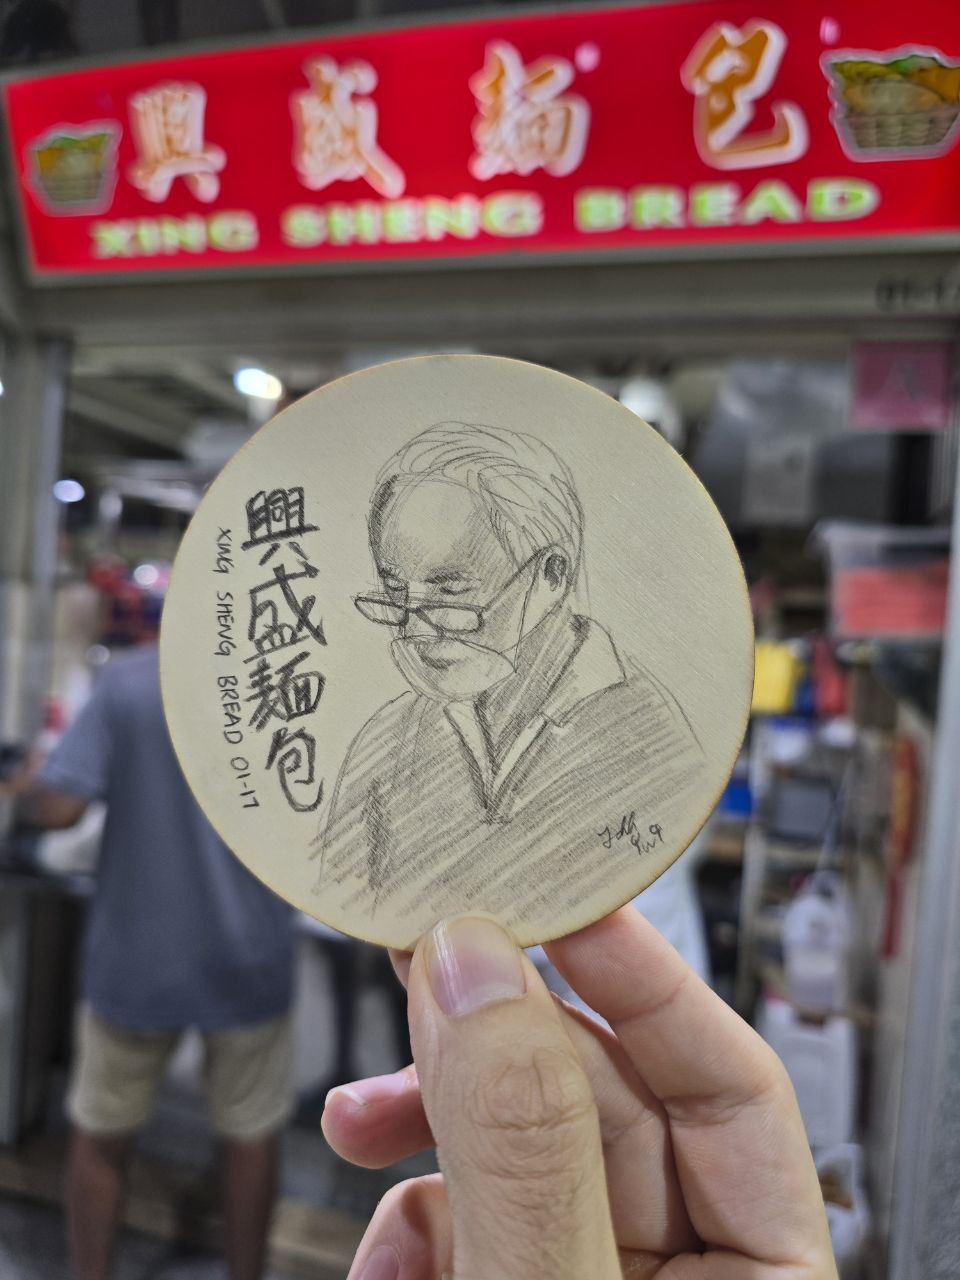 興盛麵包
XING SHENG BREAD
興盛麵包
XING SHENG BREAD 01-17